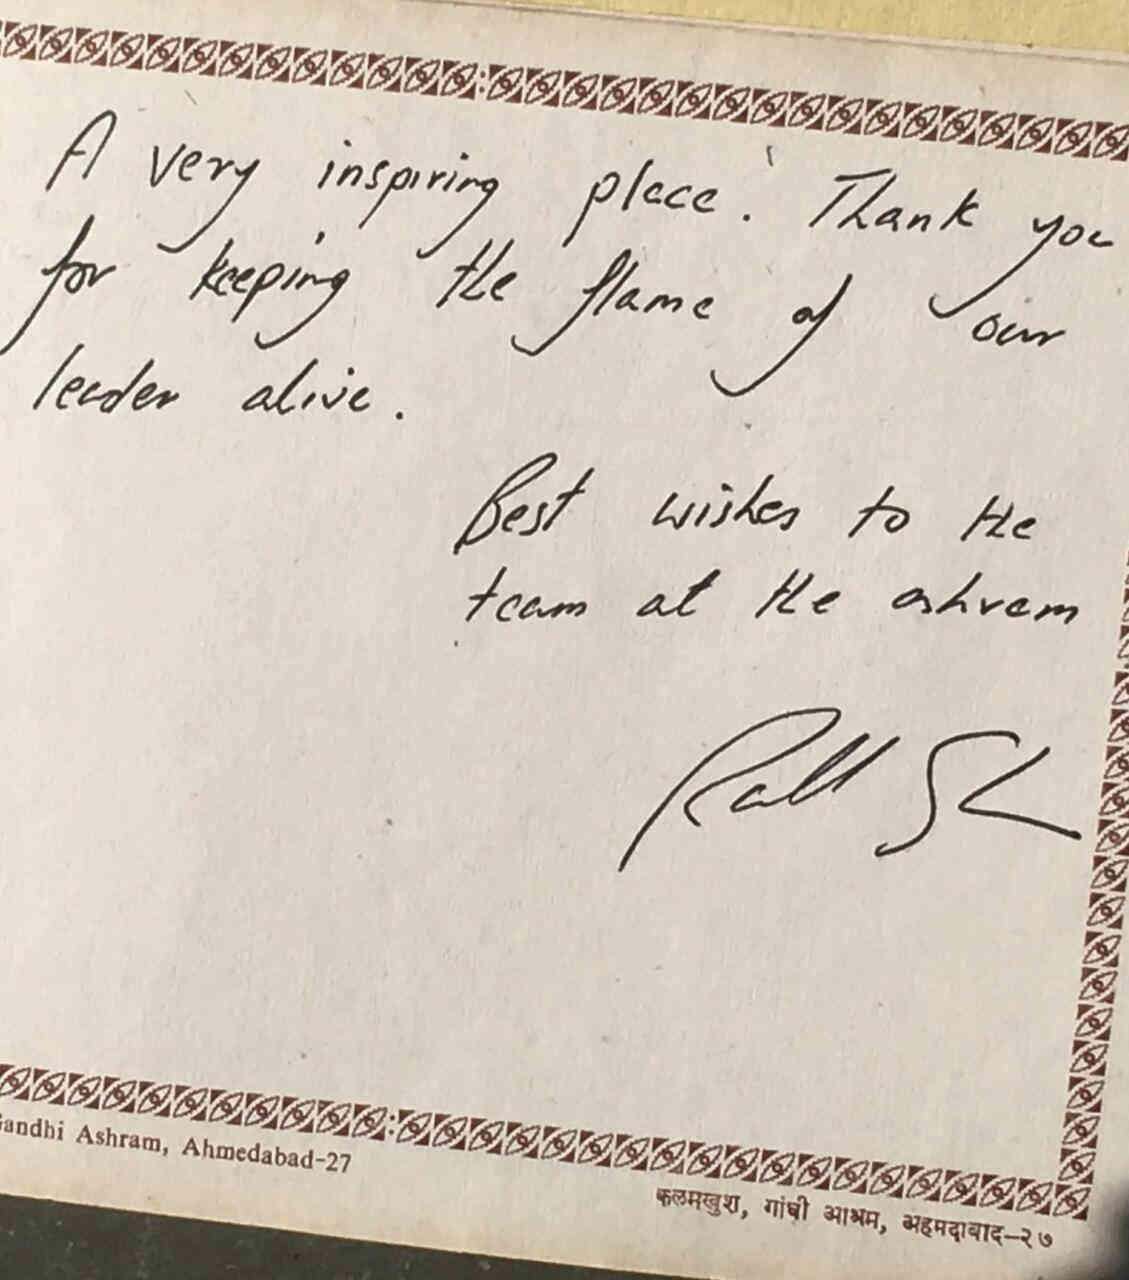 A very inspiring place. Thank you
for keeping the flame of our
leader alive.
Best wishes to the
team at the ashram
Gandhi Ashram, Ahmedabad-27
कलमखुश, गांधी आश्रम, अहमदाबाद-२७